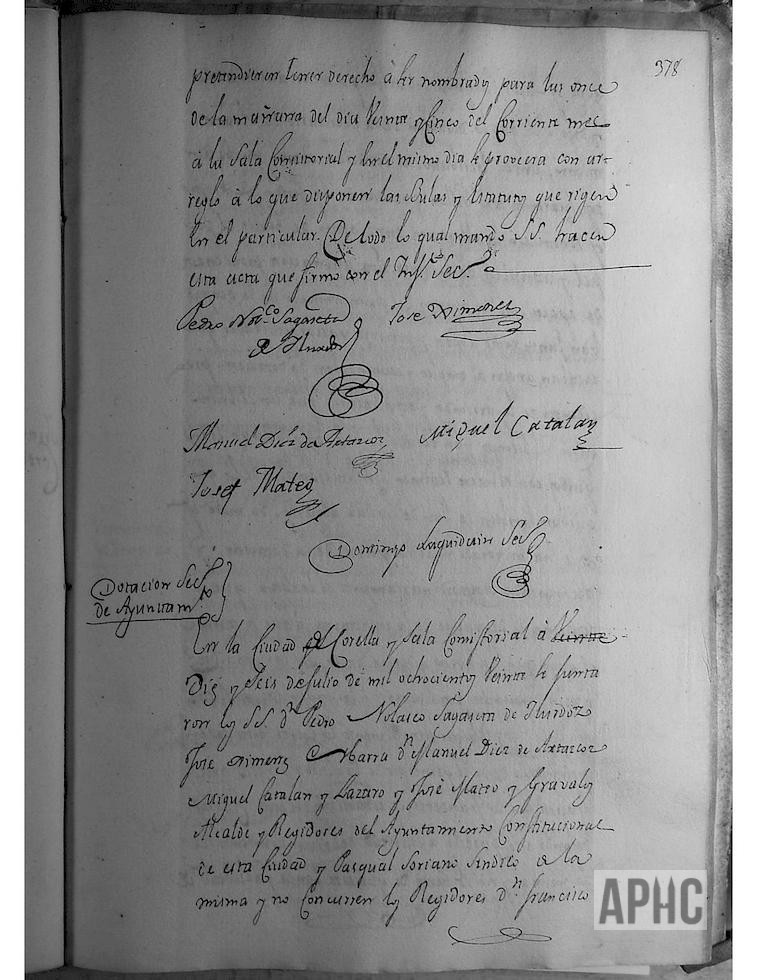 378
pretendieren tener derecho à ser nombrados para las once
de la mañana del dia Veinte y Cinco del Corriente mes
à la Sala Consistorial y en el mismo dia se proveera con ar-
reglo à lo que disponen las Bulas y Estatutos que rigen
en el particular. De todo lo qual mando S.S. hacer
esta acta que firmo con el Inf.to Sec.º
Pedro Nol.co Sagaseta
de Ilurdoz
Jose Ximenez
Manuel Diez de Artazcoz
Miguel Catalan
Josef Mateo
Domingo Laquidain Sec.º
Dotacion Sec.to
de Ayuntam.to
En la Ciudad de Corella y Sala Consistorial à Veinte
Diez y Seis de Julio de mil ochocientos Veinte se junta
ron los SS. dn Pedro Nolasco Sagaseta de Ilurdoz
José Ximenez Ybarra dn Manuel Diez de Artazcoz
Miguel Catalan y Lazaro y José Mateo y Gravalos
Alcalde y Regidores del Ayuntamiento Constitucional
de esta Ciudad y Pasqual Soriano Sindico de la
misma y no concurren los Regidores dn Francisco
APHC